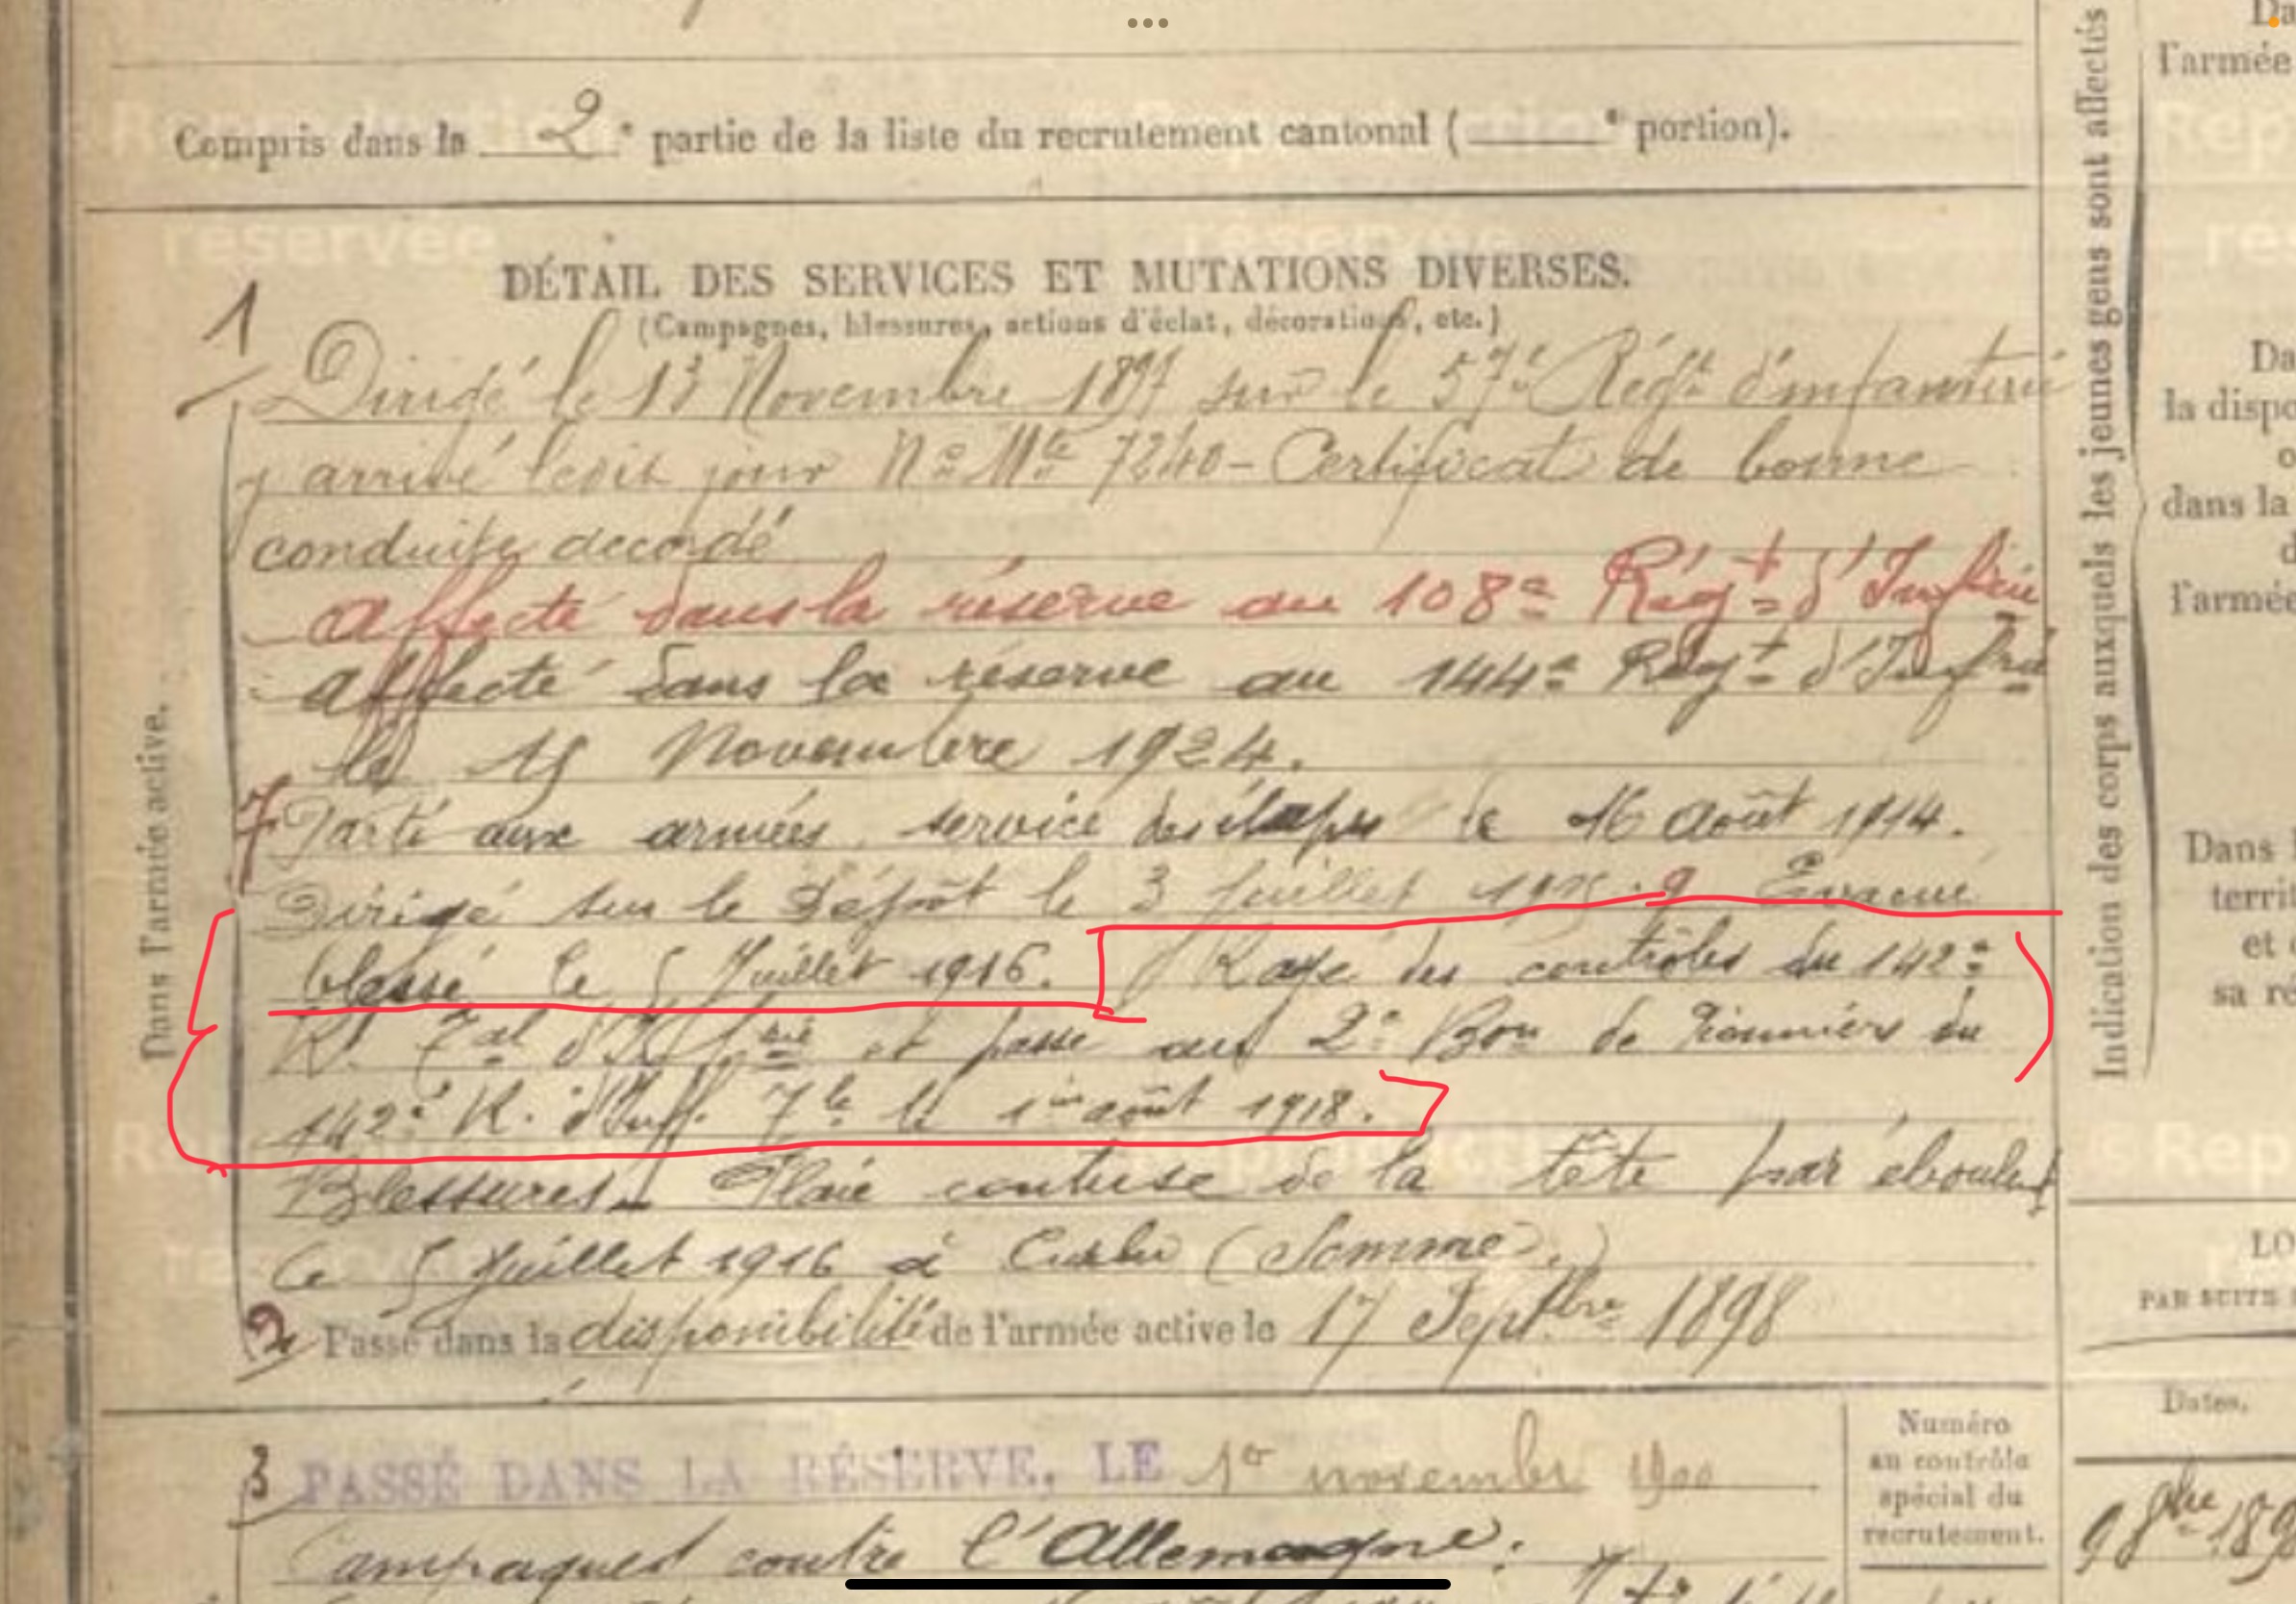 Compris dans la 2e partie de la liste du recrutement cantonal ( e portion).
DÉTAIL DES SERVICES ET MUTATIONS DIVERSES.
(Campagnes, blessures, actions d'éclat, décorations, etc.)
1
Dirigé le 13 Novembre 1897 sur le 57e Régt d'infanterie
y arrivé ledit jour No Mle 7240 - Certificat de bonne
conduite accordé
Affecté dans la réserve au 108e Régt d'Infrie
Affecté dans la réserve au 144e Régt d'Infrie
le 15 Novembre 19
7 Parti aux armées, service des étapes le 16 août 1914.
Dirigé sur le Dépôt le 3 Juillet Evacué
blessé le 5 Juillet 1916. Rayé des contrôles du 142e
R. Tal d'Infrie et passe au 2e Bon de Pionniers du
142e R. d'Inf. Tle le 1er août 1918.
Blessures - Plaie contuse de la tête par éboulet
le 5 Juillet 1916 à Curlu (Somme).
2 Passé dans la disponibilité de l'armée active le 17 Septbre 1898
3 PASSÉ DANS LA RÉSERVE, LE 1er novembre 1900
Campagnes contre l'Allemagne:
Dans l'armée active.
Numéro
au contrôle
spécial du
recrutement.
Indication des corps auxquels les jeunes gens sont affectés
l'armée
Da
la dispo
dans la
d
l'armée
Dans
terri
et
sa ré
LO
PAR SUITE
Dates.
Reproduction
réservée